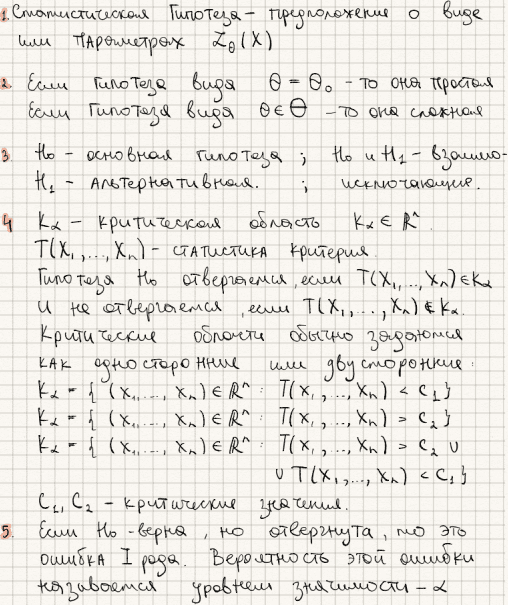 1. Статистическая Гипотеза - предположение о виде
или параметрах Z_θ(X)
2. Если гипотеза вида Θ = Θ₀ - то она простая
Если Гипотеза вида Θ ∈ Θ - то она сложная
3. H₀ - основная гипотеза ; H₀ и H₁ - взаимо-
H₁ - Альтернативная. ; исключающие.
4 K_α - критическая область K_α ∈ ℝⁿ.
T(X₁,...,Xₙ) - статистика критерия.
Гипотеза H₀ отвергается, если T(X₁,...,Xₙ) ∈ K_α
И не отвергается, если T(X₁,...,Xₙ) ∉ K_α.
Критические области обычно задаются
как односторонние или двусторонние:
K_α = { (X₁,..., Xₙ) ∈ ℝⁿ : T(X₁,..., Xₙ) < C₁}
K_α = { (X₁,..., Xₙ) ∈ ℝⁿ : T(X₁,..., Xₙ) > C₂}
K_α = { (X₁,..., Xₙ) ∈ ℝⁿ : T(X₁,..., Xₙ) > C₂ ∪
∪ T(X₁,..., Xₙ) < C₁}
C₁, C₂ - критические значения.
5. Если H₀ - верна, но отвергнута, то это
ошибка I рода. Вероятность этой ошибки
называется уровнем значимости - α